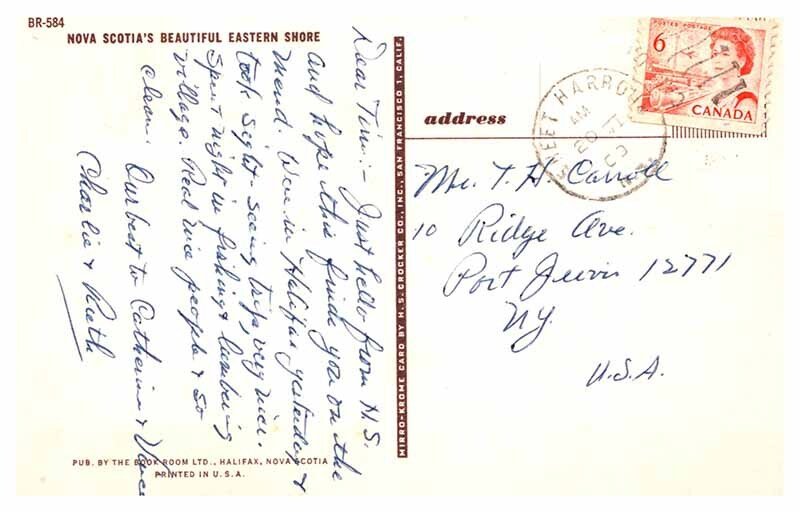 BR-584
NOVA SCOTIA'S BEAUTIFUL EASTERN SHORE
Dear Tim:- Just hello from N.S.
and hope this finds you on the
mend. Were in Halifax yesterday &
took sight-seeing trip, very nice.
Spent night in fishing & lumbering
village. Real nice people & so
clean. Our best to Catherine &
Charlie & Ruth
PUB. BY THE BOOK ROOM LTD., HALIFAX, NOVA SCOTIA
PRINTED IN U.S.A.
MIRRO-KROME CARD BY H.S. CROCKER CO., INC., SAN FRANCISCO 1, CALIF.
POSTES POSTAGE
6
CANADA
HARBOUR
AM
20
address
Mr. T. H. Carroll
10 Ridge Ave.
Port Jervis 12771
N.Y.
U.S.A.